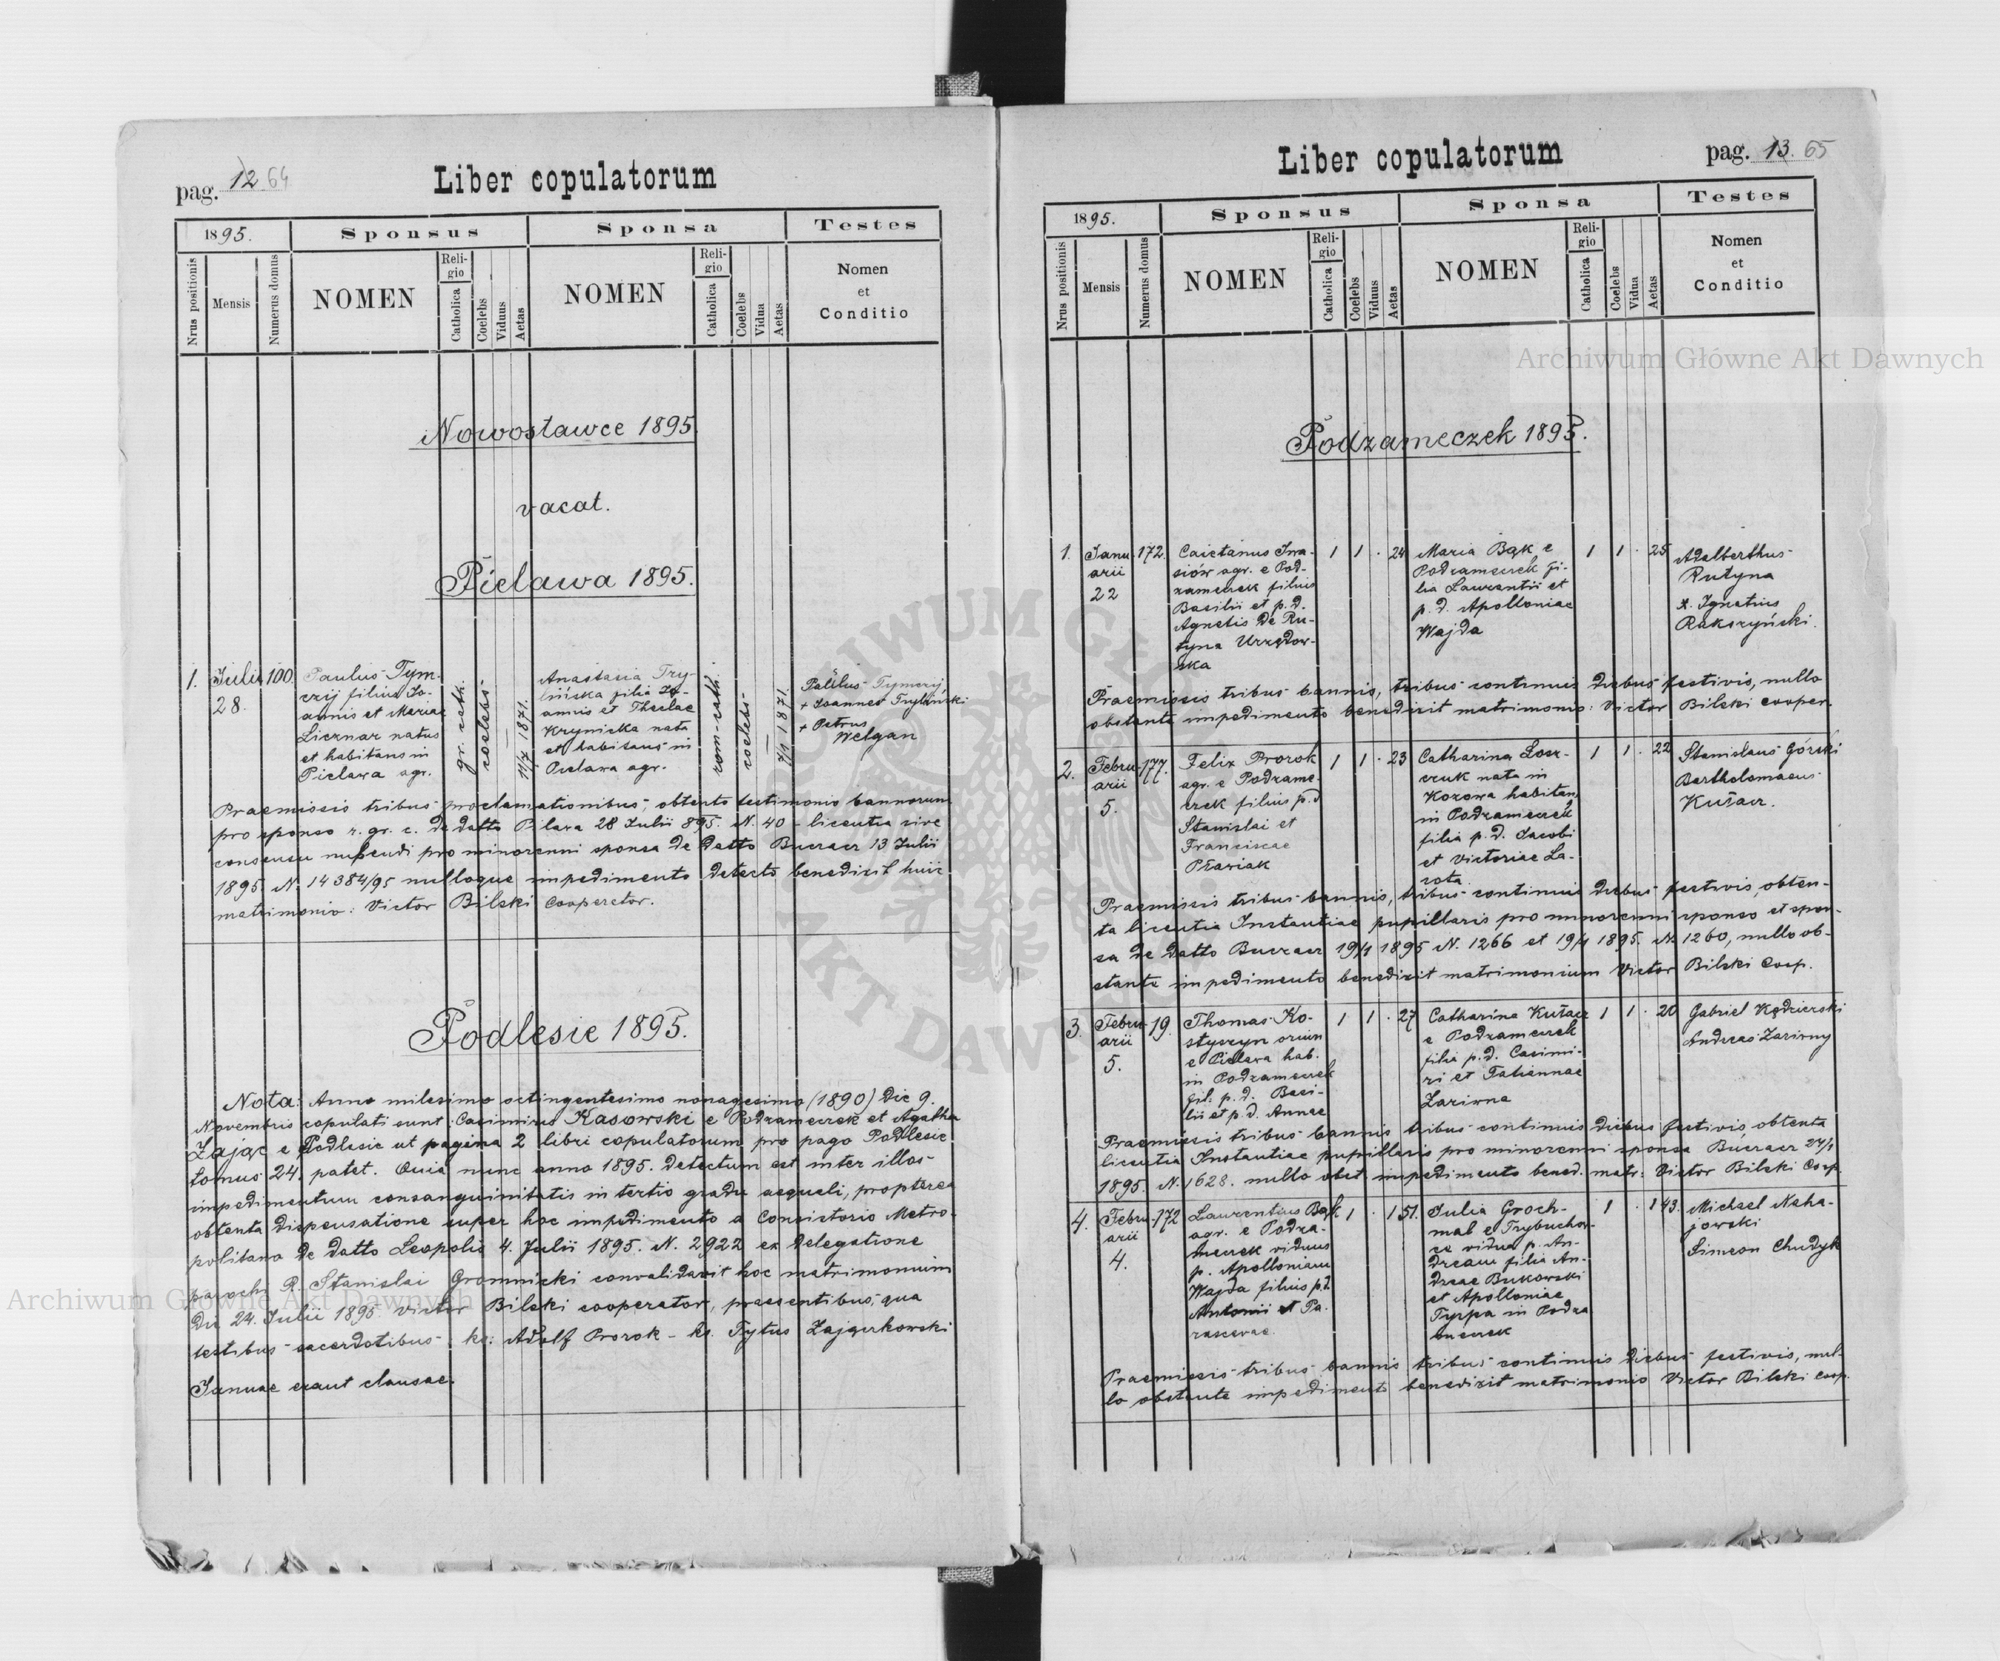 pag. 12 64
Liber copulatorum
1895.
Sponsus
Sponsa
Testes
Nrus positionis
Mensis
Numerus domus
NOMEN
Religio
Catholica
Coelebs
Viduus
Aetas
NOMEN
Religio
Catholica
Coelebs
Vidua
Aetas
Nomen
et
Conditio
Nowostawce 1895.
vacat.
Pielawa 1895.
1.
Julii
28.
100.
Paulus Tym-
czij filius Jo-
annis et Mariae
Licznar natus
et habitans in
Pielawa agr.
gr. cath.
coelebs
11/7 1871.
Anastasia Try-
lińska filia Jo-
annis et Theclae
Krynicka nata
et habitans in
Pielawa agr.
rom-cath.
coelebs
7/1 1871.
Paulus Tymczij
+ Joannes Tryliński
+ Petrus
Welgan
Praemissis tribus proclamationibus, obtento testimonio bannorum
pro sponso r. gr. c. de datto Pilava 28 Julii 895. N. 40 - licentia sive
consensu nubendi pro minorenni sponsa de datto Buczacz 13 Julii
1895 N. 14384/95 nulloque impedimento detecto benedixit huic
matrimonio: Victor Bilski cooperator.
Podlesie 1895.
Nota: Anno milesimo octingentesimo nonagesimo (1890) die 9.
Novembris copulati sunt: Casimirus Kasowski e Podzameczek et Agatha
Zając e Podlesie ut pagina 2 libri copulatorum pro pago Podlesie
tomus 24. patet. Quia nunc anno 1895. detectum est inter illos
impedimentum consanguinitatis in tertio gradu aequali, propterea
obtenta dispensatione super hoc impedimento a Consistorio Metro-
politano de datto Leopolis 4. Julii 1895. N. 2922 ex delegatione
parochi R. Stanislai Gromnicki convalidavit hoc matrimonium
die 24. Julii 1895 Victor Bilski cooperator, praesentibus, qua
testibus sacerdotibus: ks: Adolf Prorok - ks. Tytus Zajączkowski
Januae erant clausae.
Liber copulatorum
pag. 13. 65
1895.
Sponsus
Sponsa
Testes
Nrus positionis
Mensis
Numerus domus
NOMEN
Religio
Catholica
Coelebs
Viduus
Aetas
NOMEN
Religio
Catholica
Coelebs
Vidua
Aetas
Nomen
et
Conditio
Podzameczek 1895.
1.
Janu-
arii
22
172.
Caietanus Iwa-
siów agr. e Pod-
zameczek filius
Basilii et p. d.
Agnetis de Ru-
tyna Urzędow-
ska
1 1 . 24
Maria Bąk e
Podzameczek fi-
lia Laurentii et
p. d. Apolloniae
Wajda
1 1 . 25
Adalberthus
Rutyna
x. Ignatius
Rakszyński.
Praemissis tribus bannis, tribus continuis diebus festivis, nullo
obstante impedimento benedixit matrimonio: Victor Bilski cooper.
2.
Febru-
arii
5.
177.
Felix Prorok
agr. e Podzame-
czek filius p. d
Stanislai et
Franciscae
Ptaziak
1 1 . 23
Catharina Łosz-
czuk nata in
Kozowa habitan,
in Podzameczek
filia p. d. Jacobi
et Victoriae La-
rota
1 1 . 22
Stanislaus Górski
Bartholomaeus
Kuśacz.
Praemissis tribus bannis, tribus continuis diebus festivis, obten-
ta licentia Instantiae pupillaris pro minorenni sponso et spon-
sa de datto Buczacz 19/1 1895 N. 1266 et 19/1 1895. N. 1260, nullo ob-
stante impedimento benedixit matrimonium Victor Bilski Coop.
3.
Febru-
arii
5.
19.
Thomas Ko-
styszyn oriun
e Pielawa hab.
in Podzameczek
fil: p. d. Basi-
lii et p. d. Annae
1 1 . 27
Catharina Kuśacz
e Podzameczek
filia p. d. Casimi-
ri et Tatiennae
Zarivna
1 1 . 20
Gabriel Kędzierski
Andreas Zarivny
Praemissis tribus bannis tribus continuis diebus festivis, obtenta
licentia Instantiae pupillaris pro minorenni sponsa Buczacz 27/1
1895. N. 1628. nullo obst impedimento bened. matr: Victor Bilski Coop.
4.
Febru-
arii
4.
172
Laurentius Bąk
agr. e Podza-
meczek viduus
p. Apolloniam
Wajda filius p. d.
Antonii et Pa-
rascevae
1 . 1 51.
Julia Groch-
mal e Trybuchow-
ce vidua p. An-
dream filia An-
dreae Bukowski
et Apolloniae
Tyrpa in Podza
meczek
1 . 1 43.
Michael Naha-
jowski
Simeon Chudyk
Praemissis tribus bannis tribus continuis diebus festivis, nul-
lo obstante impedimento benedixit matrimonio Victor Bilski coop.
Archiwum Główne Akt Dawnych
Archiwum Główne Akt Dawnych
ARCHIWUM GŁÓWNE
AKT DAWNYCH